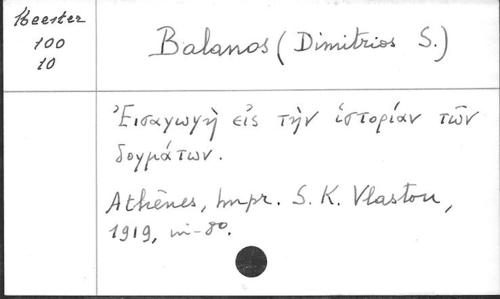 Heester
100
10
Balanos (Dimitrios S.)
Ἐισαγωγὴ εἰς τὴν ἱστορίαν τῶν
δογμάτων.
Athènes, Impr. S. K. Vlastou,
1919, in-8º.